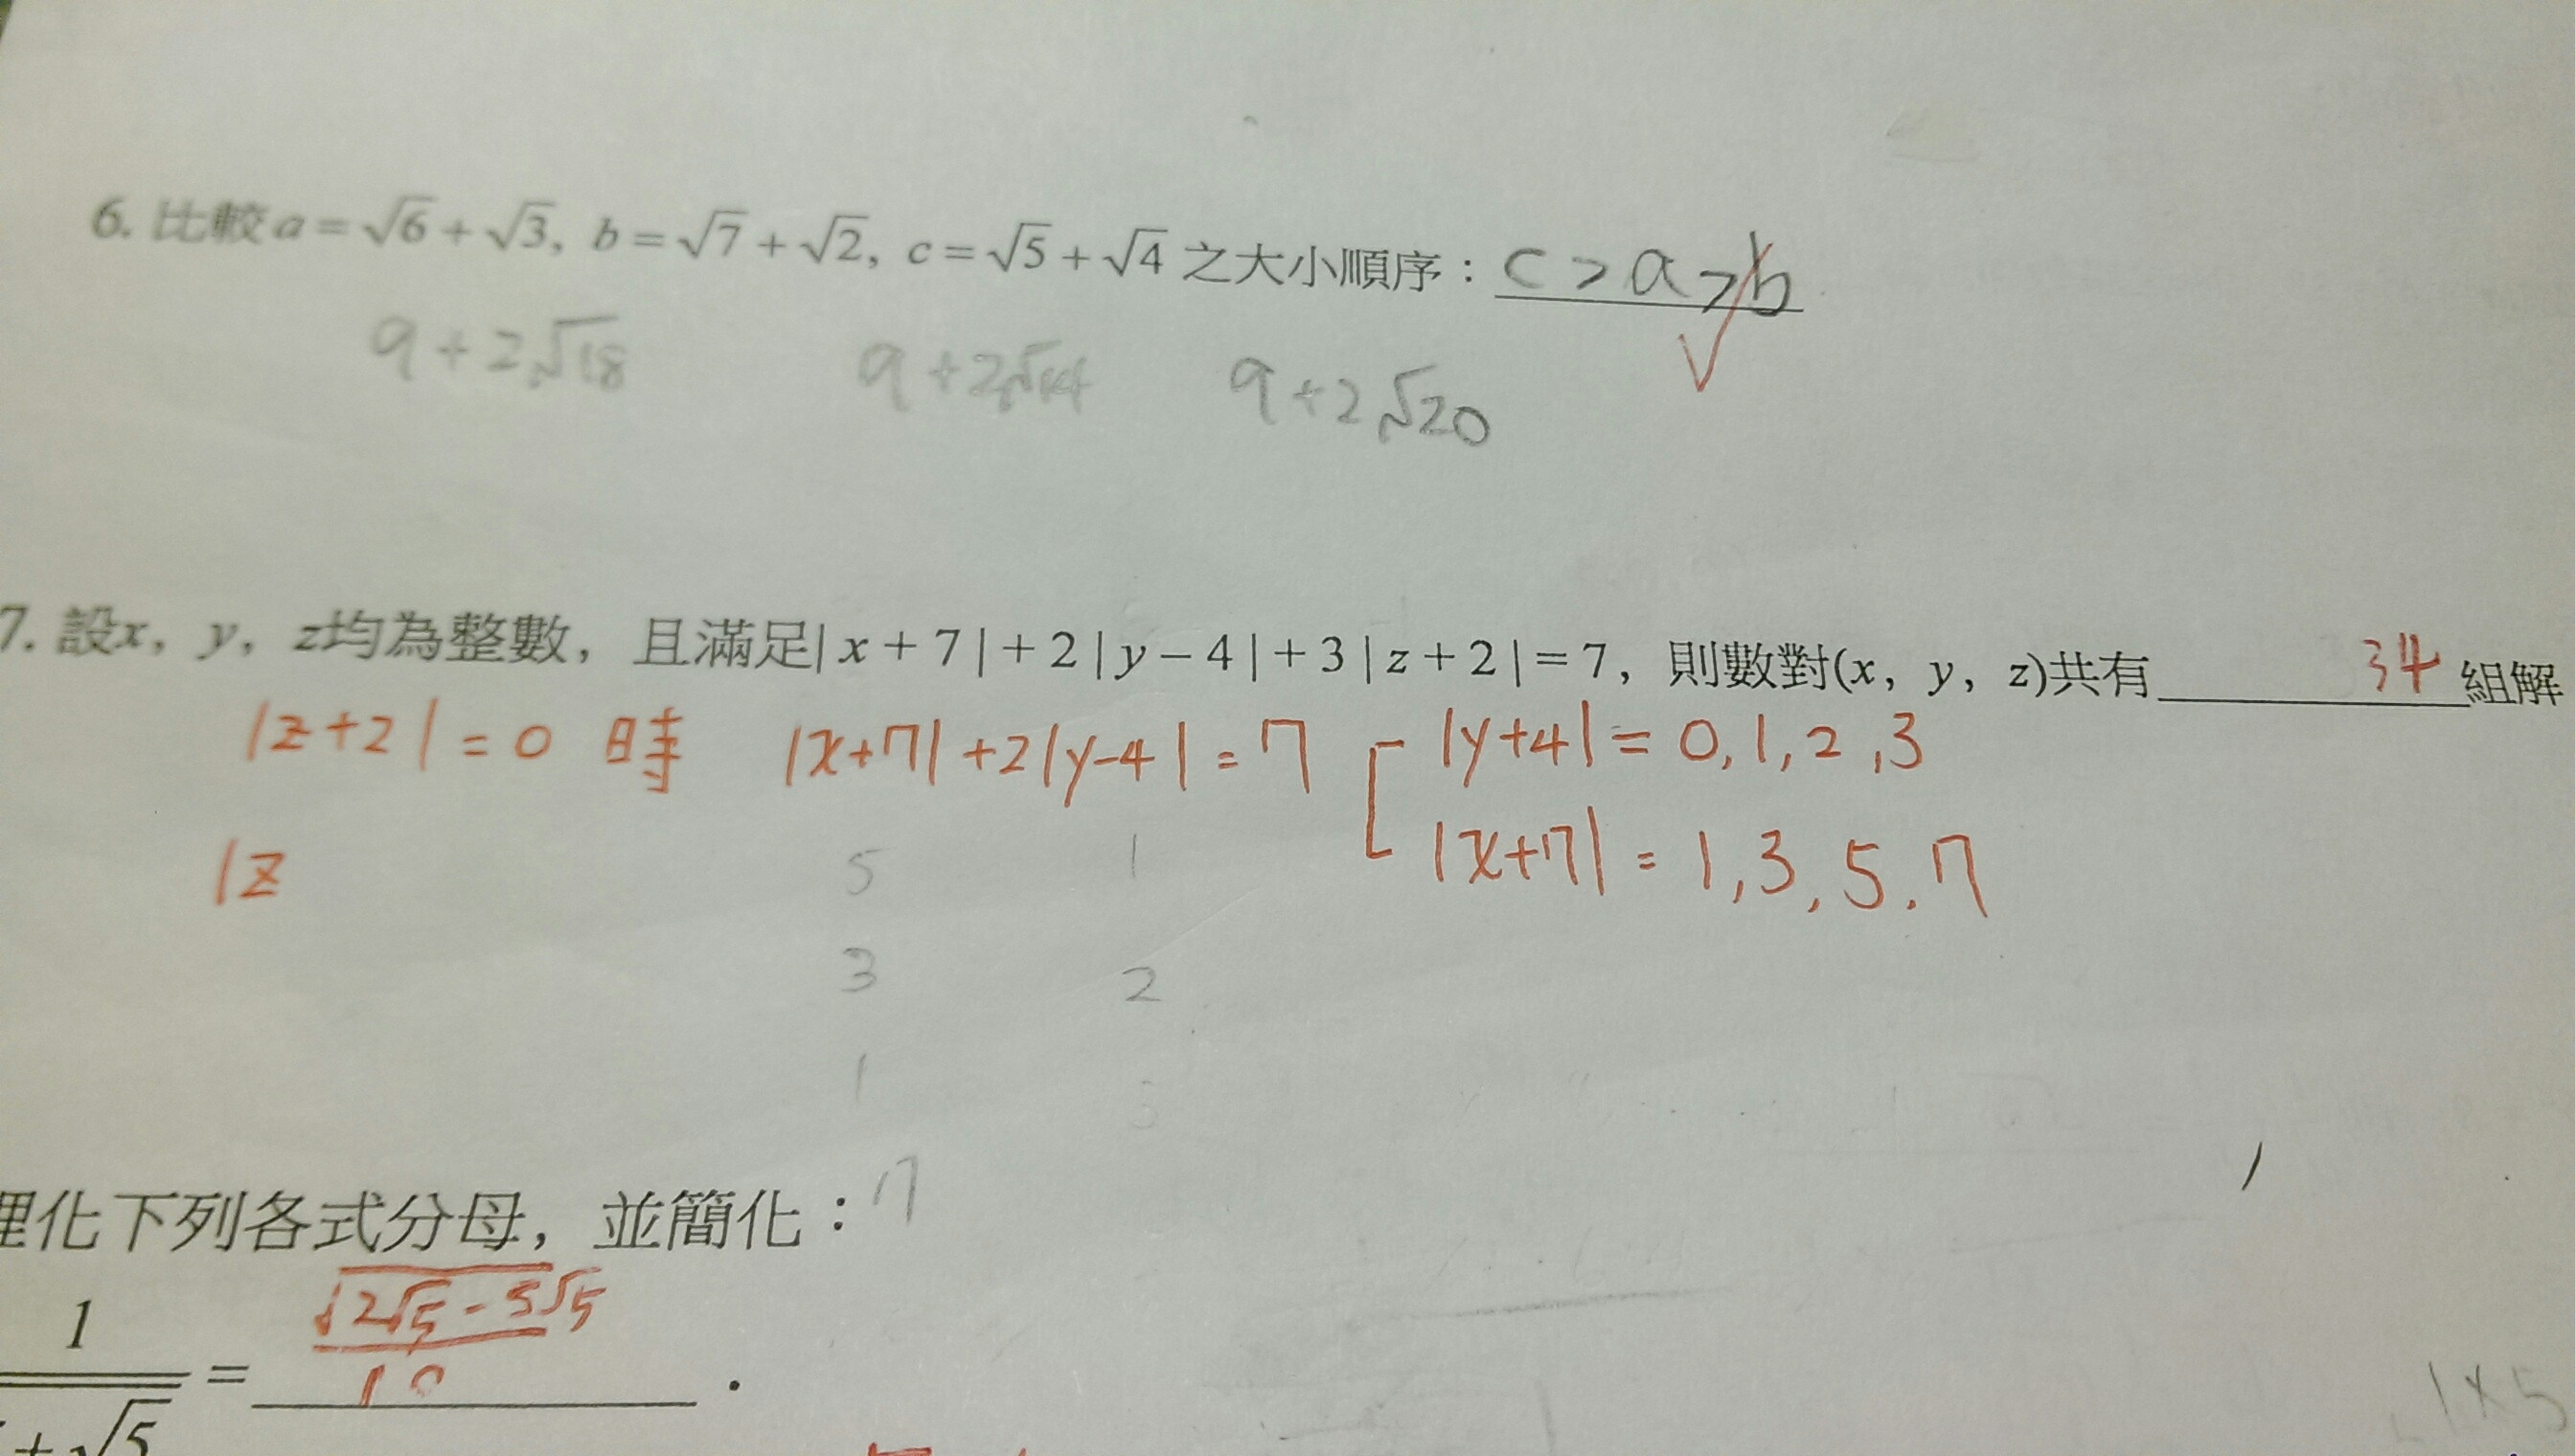 6. 比較 a = √6 + √3, b = √7 + √2, c = √5 + √4 之大小順序：c > a > b
9 + 2√18 9 + 2√14 9 + 2√20
7. 設x，y，z均為整數，且滿足| x + 7 | + 2 | y − 4 | + 3 | z + 2 | = 7，則數對(x，y，z)共有 34 組解
|z+2| = 0 時 |x+7| + 2|y-4| = 7 |y+4| = 0, 1, 2, 3
|z 5 1 |x+7| = 1, 3, 5, 7
3 2
1 3
理化下列各式分母，並簡化： 7
1 =
+ √5
1×5